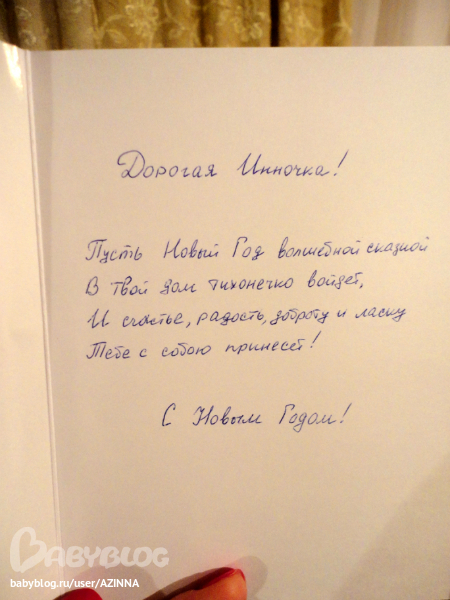 Дорогая Инночка!
Пусть Новый Год волшебной сказкой
В твой дом тихонечко войдет,
И счастье, радость, доброту и ласку
Тебе с собою принесет!
С Новым Годом!
BABYBLOG
babyblog.ru/user/AZINNA